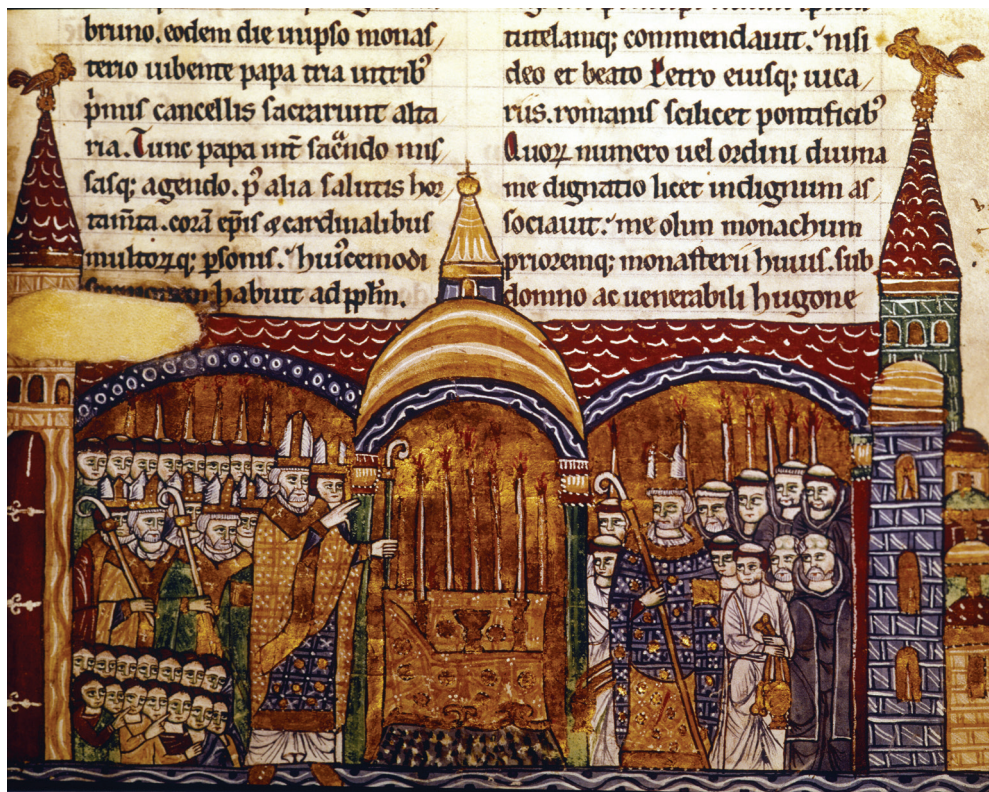 bruno. eodem die in ipso monas/
terio iubente papa tria in tribꝰ
p̍mis cancellis sacrarunt alta
ria. Tunc papa int̄ sac̄ndo mis/
sasq; agendo. pꝰ alia salutis hor/
tam̄ta. corā ep̄is & cardinalibus
multoꝝq; p̱sonis. huiꝰcemodi
habuit ad pp̄lm.
tutelamq; commendauit. nisi
deo et beato Petro eiusq; uica/
riis. romanis scilicet pontificibꝰ
Quoꝝ numero uel ordini diuina
me dignatio licet indignum as/
sociauit. me olim monachum
prioremq; monasterii huius. sub
domno ac uenerabili hugone